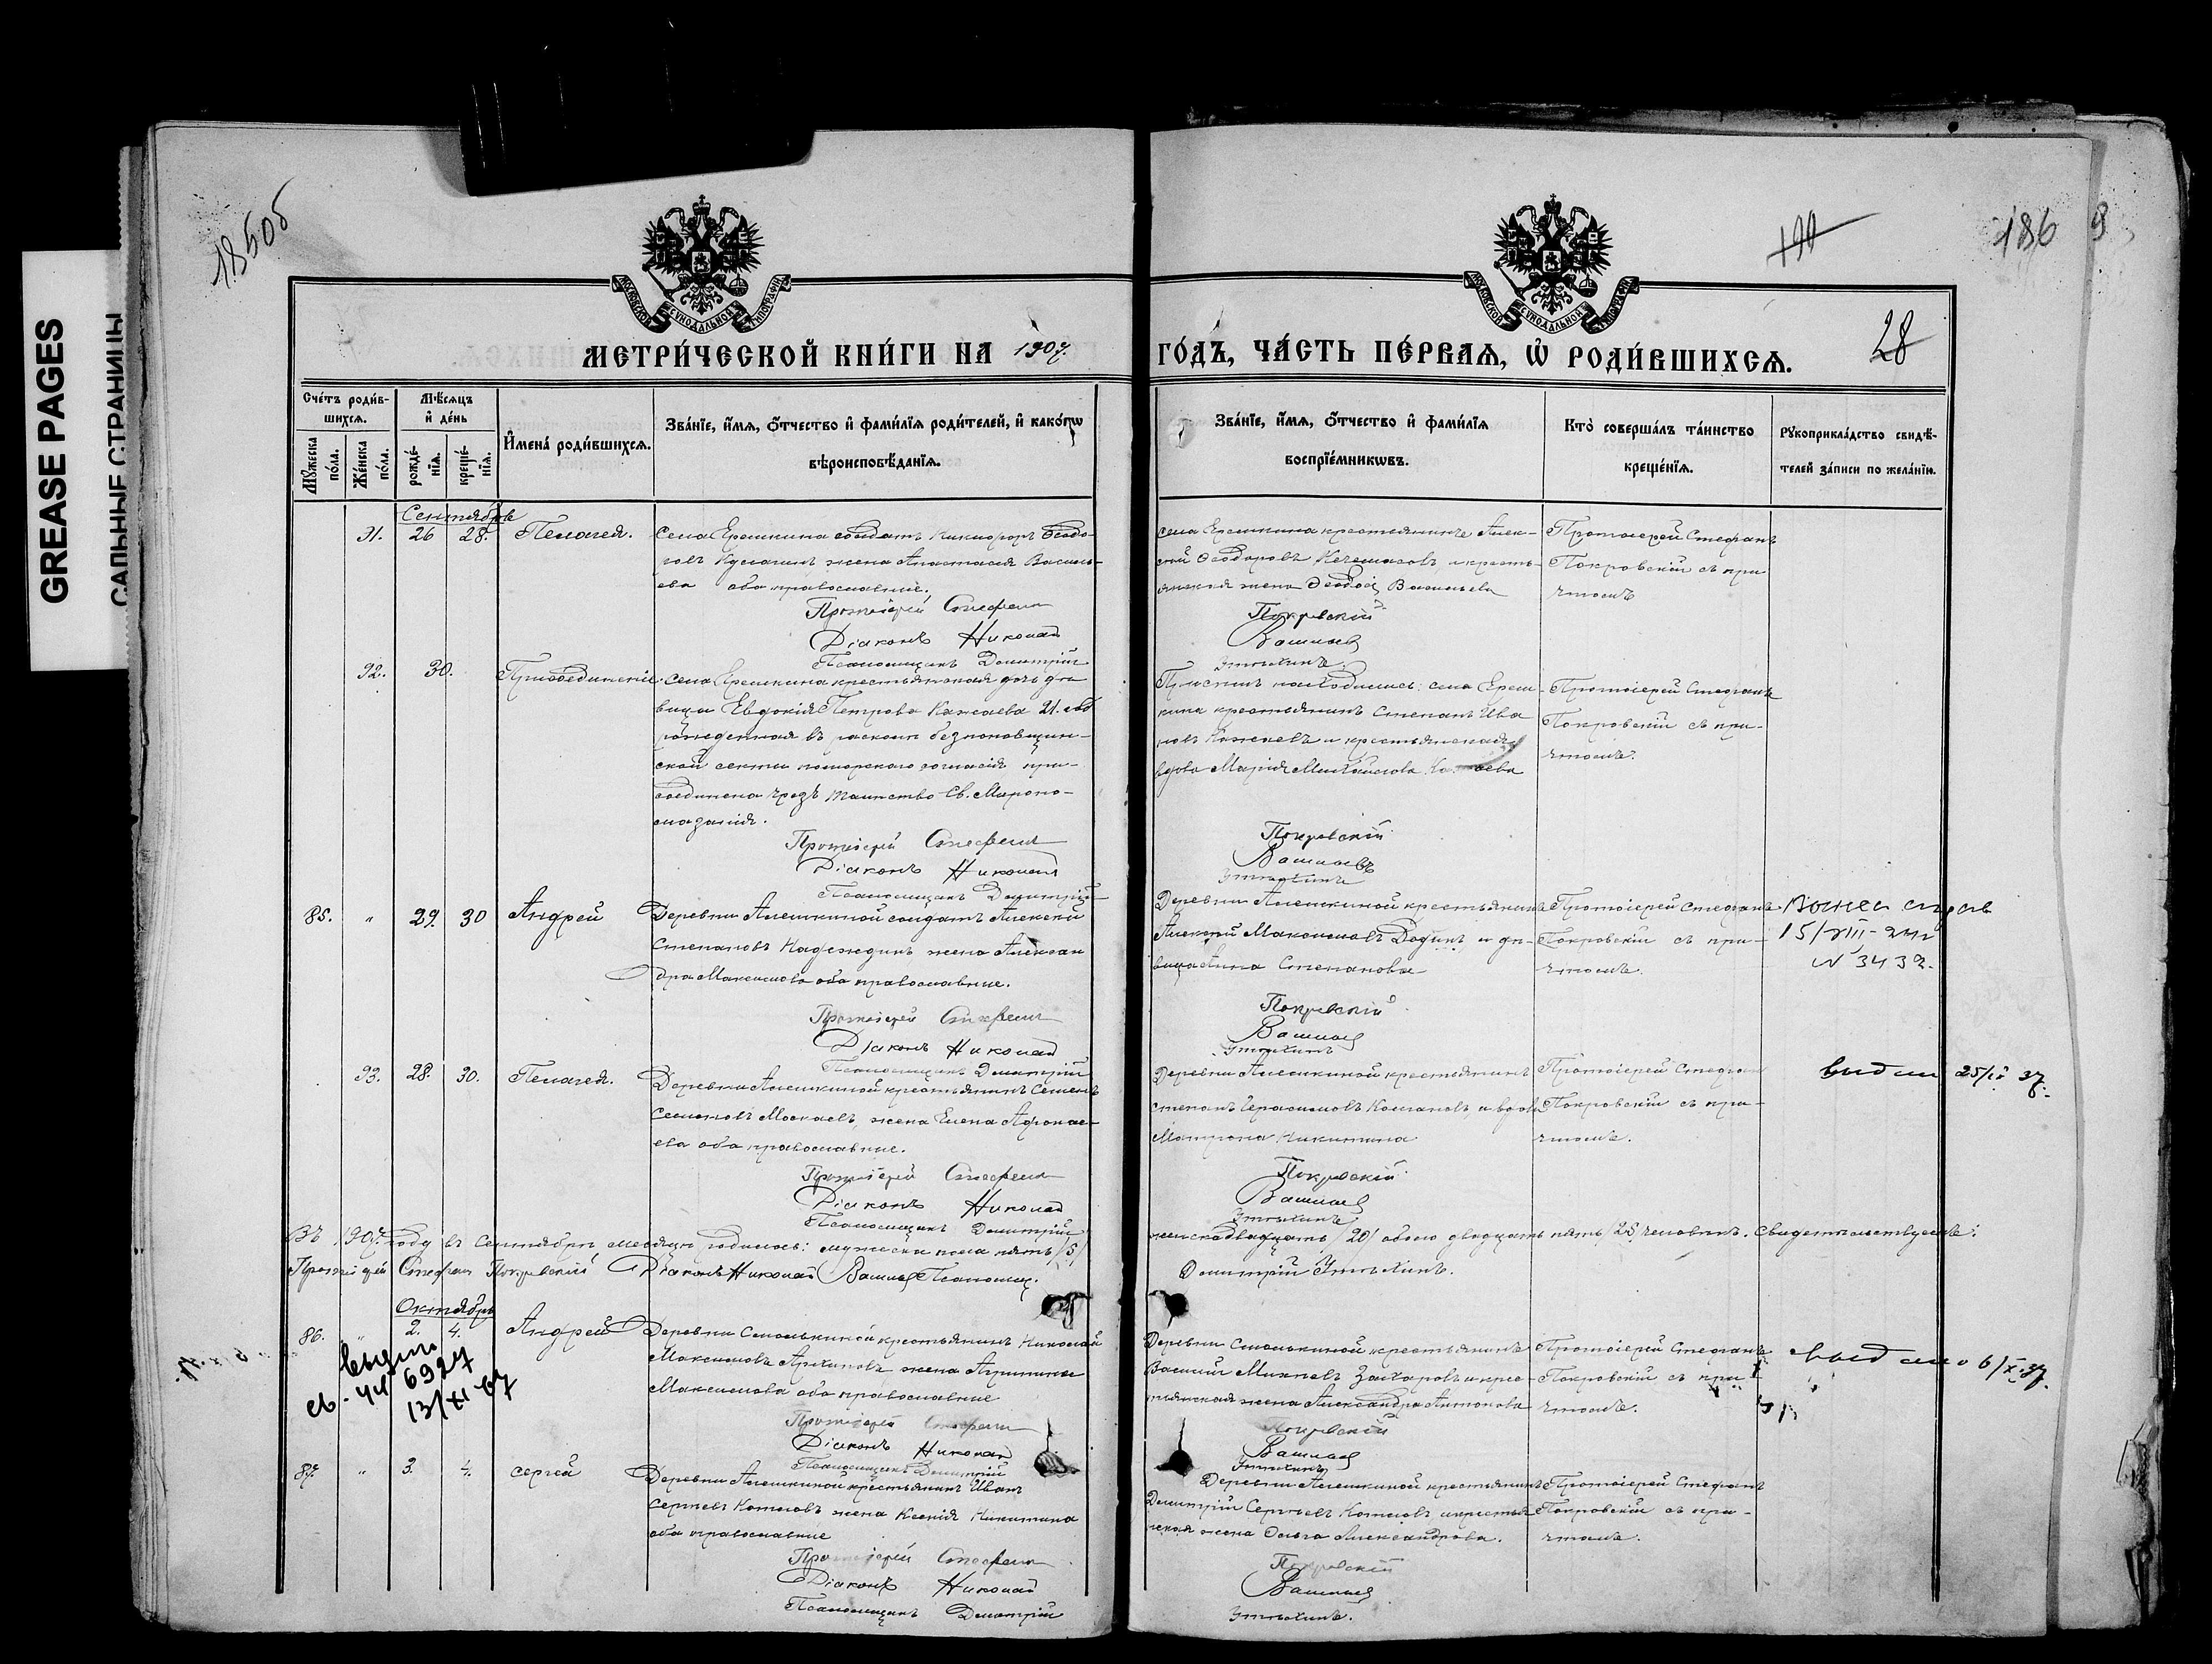 GREASE PAGES
САЛЬНЫЕ СТРАНИЦЫ
185об
190
186
9
28
МОСКОВСКОЙ СѴНОДАЛЬНОЙ ТИПОГРАФІИ
МОСКОВСКОЙ СѴНОДАЛЬНОЙ ТИПОГРАФІИ
МЕТРИ́ЧЕСКОЙ КНИ́ГИ НА 1907.
ГО́ДЪ, ЧА́СТЬ ПЕ́РВАЯ, Ѡ РОДИ́ВШИХСЯ.
Сче́тъ роди́вшихся.
Му́жеска по́ла.
Же́нска по́ла.
Мѣ́сяцъ и де́нь
рожде́нїя.
креще́нїя.
И҆мена̀ роди́вшихся.
Зва́нїе, и҆́мя, ѻ҆́тчество и҆ фами́лїя роди́телей, и҆ како́гѡ
вѣроисповѣ́данїя.
Зва́нїе, и҆́мя, ѻ҆́тчество и҆ фами́лїя
воспрїе́мникѡвъ.
Кто̀ соверша́лъ та́инство
креще́нїя.
Рꙋкоприкла́дство свидѣ́-
телей за́писи по жела́нїю.
Сентябрь
91. 26 28. Пелагея.
Села Ерешкина солдатъ Никифоръ Ѳеодо-
ровъ жена Анастасія Василь-
ева оба православные.
Протоіерей Стефанъ
Діаконъ Николай
Псаломщикъ Димитрій
села Ерешкина крестьянинъ Алек-
сѣй Ѳеодоровъ и кресть-
янская жена Васильева
Покровскій
Вашлаев
Утѣхинъ.
Протоіерей Стефанъ
Покровскій съ при
чтомъ
92. 30. Присоединеніе.
Села Ерешкина крестьянская дочь дѣ-
вица Евдокія Петрова Кажаева 21. год
рожденная въ расколѣ безпоповщин-
ской секты поморскаго согласія при-
соединена чрезъ таинство Св. Мѵропо-
мазанія.
Протоіерей Стефанъ
Діаконъ Николай
Псаломщикъ Димитрій
находились: села Ереш-
кина крестьянинъ Степанъ Ива
новъ и крестьянская
вдова Марія Михайлова
Покровскій
Вашлаевъ
Утѣхинъ
Протоіерей Стефанъ
Покровскій съ при-
чтомъ.
85. " 29. 30 Андрей
Деревни Алешкиной солдатъ Алексѣй
Степановъ Надеждинъ жена Алексан
дра Максимова оба православные.
Протоіерей Стефанъ
Діаконъ Николай
Псаломщикъ Димитрій
Деревни Алешкиной крестьянинъ
Алексѣй Максимовъ и дѣ-
вица Анна Степанова
Покровскій
Вашлаев
Утѣхинъ
Протоіерей Стефанъ
Покровскій съ при-
чтомъ.
15/VIII-24г
№ 3432.
93. 28. 30. Пелагея.
Деревни Алешкиной крестьянинъ Семенъ
Семеновъ жена Елена Афонась-
ева оба православные.
Протоіерей Стефанъ
Діаконъ Николай
Псаломщикъ Димитрій
Деревни Алешкиной крестьянинъ
Степанъ Герасимовъ и вдова
Матрона Никитина
Покровскій
Вашлаев
Утѣхинъ.
Протоіерей Стефанъ
Покровскій съ при-
чтомъ.
выдан 37.
Въ 1907. году въ Сентябрѣ мѣсяцѣ родилось: мужеска пола пять /5/
женска двадцать /20/ обоего двадцать пять /25/ человѣкъ. Свидѣтельствуемъ:
Протоіерей Стефанъ Покровскій Діаконъ Николай Вашлаев Псаломщ.
Димитрій Утѣхинъ.
Октябрь
86. " 2. 4. Андрей
выдано
св. 6927
13/XI-67
Деревни Смолькиной крестьянинъ Николай
Максимовъ Архиповъ жена Агрипина
Максимова оба православные
Протоіерей Стефанъ
Діаконъ Николай
Псаломщикъ Димитрій
Деревни Смолькиной крестьянинъ
Василій Михеевъ Захаровъ и крес-
тьянская жена Александра Антонова
Покровскій
Вашлаев
Утѣхинъ
Протоіерей Стефанъ
Покровскій съ при-
чтомъ.
выдано 6/X.37.
87. " 3. 4. Сергѣй
Деревни Алешкиной крестьянинъ Иванъ
Сергѣевъ Котловъ жена Ксенія Никитина
оба православные
Протоіерей Стефанъ
Діаконъ Николай
Псаломщикъ Димитрій
Деревни Алешкиной крестьянинъ
Димитрій Сергѣевъ Котловъ и крестья
нская жена Ольга Александрова.
Покровскій
Вашлаев
Утѣхинъ.
Протоіерей Стефанъ
Покровскій съ при-
чтомъ.